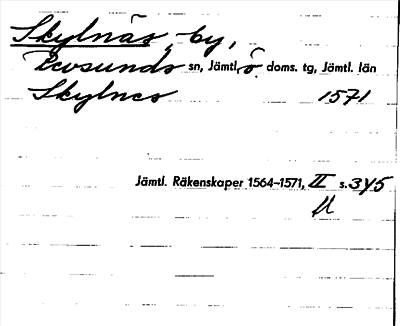 Skylnäs, by,
Revsunds sn, Jämtl. ö. doms. tg, Jämtl. län
Skylnes 1571
Jämtl. Räkenskaper 1564–1571, II s. 345